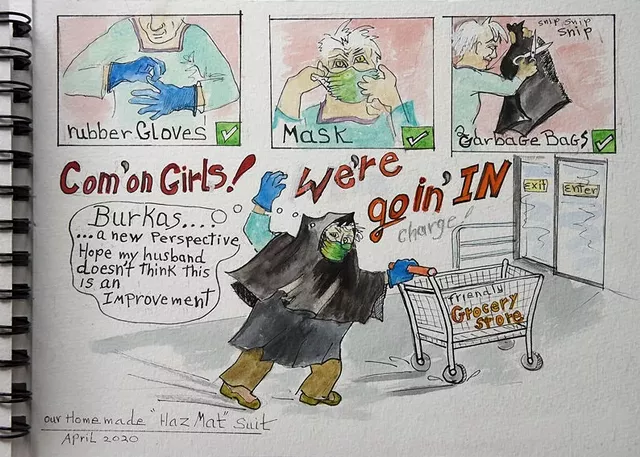 snip snip
snip
rubber Gloves
Mask
Garbage Bags
Com'on Girls!
We're
goin' IN
charge!
exit
enter
Burkas...?
...a new Perspective
Hope my husband
doesn't think this
is an
Improvement
friendly
Grocery
store
our Homemade "Haz Mat" suit
April 2020